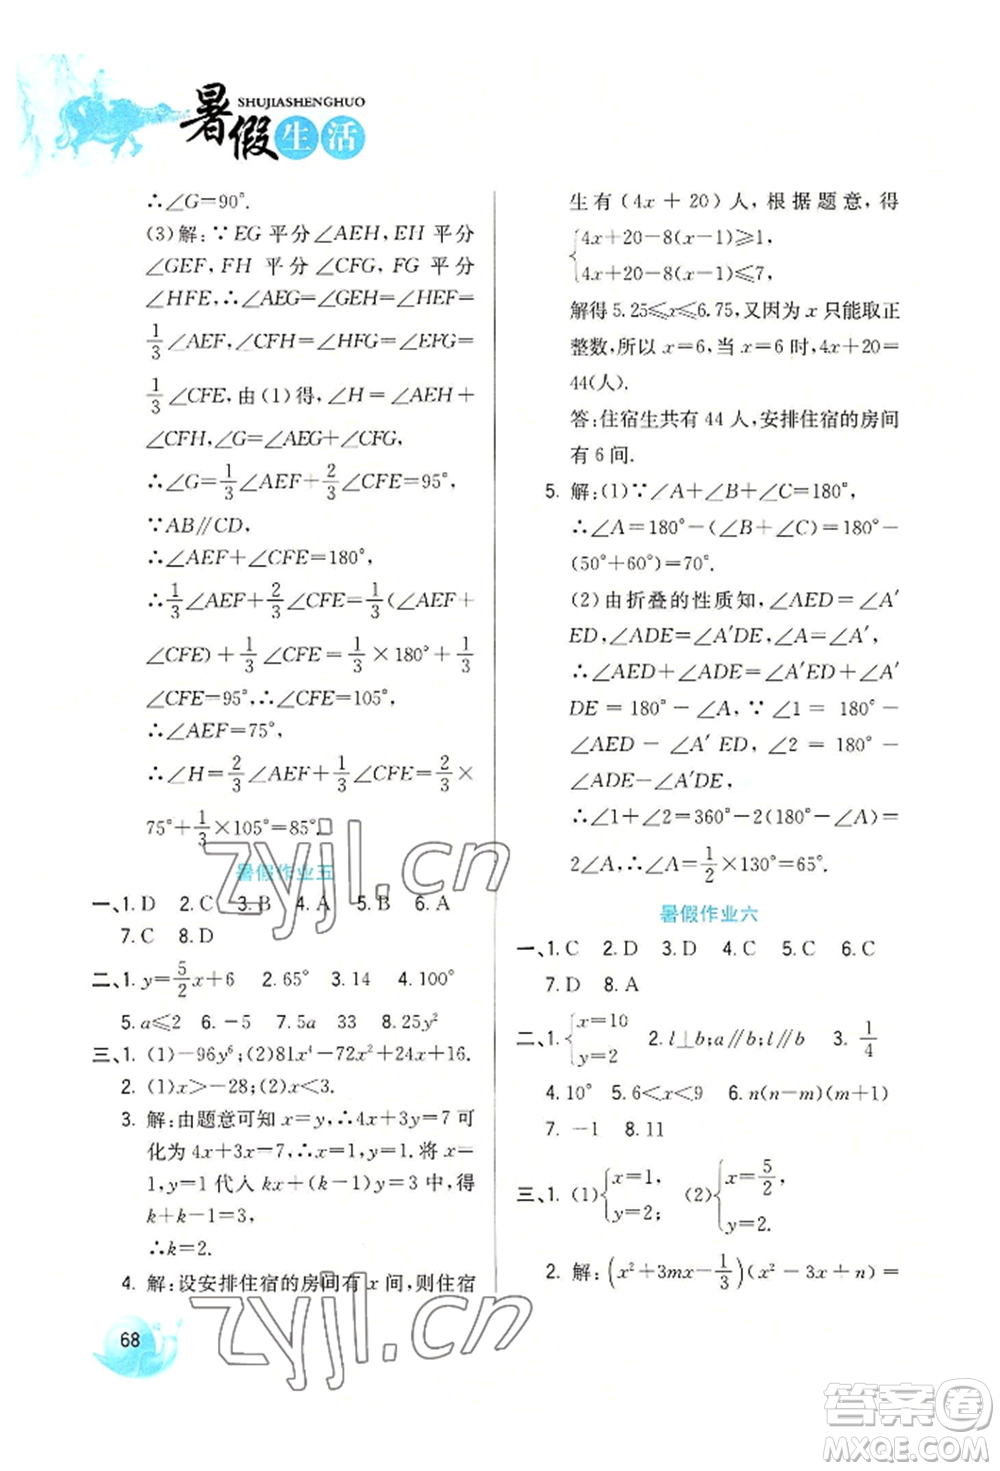 暑假生活
SHUJIASHENGHUO
∴∠G=90°.
(3)解:∵EG平分∠AEH,EH平分
∠GEF,FH平分∠CFG,FG平分
∠HFE,∴∠AEG=∠GEH=∠HEF=
1/3∠AEF,∠CFH=∠HFG=∠GFE=
1/3∠CFE,由(1)得,∠H=∠AEH+
∠CFH,∠G=∠AEG+∠CFG,
∴∠G=1/3∠AEF+2/3∠CFE=95°,
∵AB∥CD,
∴∠AEF+∠CFE=180°,
∴1/3∠AEF+2/3∠CFE=1/3(∠AEF+
∠CFE)+1/3∠CFE=1/3×180°+1/3
∠CFE=95°,∴∠CFE=105°,
∴∠AEF=75°,
∴∠H=2/3∠AEF+1/3∠CFE=2/3×
75°+1/3×105°=85°.
暑假作业五
一、1. D 2. C 3. B 4. A 5. B 6. A
7. C 8. D
二、1. y=5/2x+6 2. 65° 3. 14 4. 100°
5. a≤2 6. -5 7. 5a 33 8. 25y²
三、1. (1)-96y⁶;(2)81x⁴-72x²+24x+16.
2. (1)x>-28;(2)x<3.
3. 解:由题意可知x=y,∴4x+3y=7可
化为4x+3x=7,∴x=1,y=1.将x=
1,y=1代入kx+(k-1)y=3中,得
k+k-1=3,
∴k=2.
4. 解:设安排住宿的房间有x间,则住宿
68
生有(4x+20)人,根据题意,得
{4x+20-8(x-1)≥1,
4x+20-8(x-1)≤7,
解得5.25≤x≤6.75,又因为x只能取正
整数,所以x=6,当x=6时,4x+20=
44(人).
答:住宿生共有44人,安排住宿的房间
有6间.
5. 解:(1)∵∠A+∠B+∠C=180°,
∴∠A=180°-(∠B+∠C)=180°-
(50°+60°)=70°.
(2)由折叠的性质知,∠AED=∠A′
ED,∠ADE=∠A′DE,∠A=∠A′,
∴∠AED+∠ADE=∠A′ED+∠A′
DE=180°-∠A,∵∠1=180°-
∠AED-∠A′ED,∠2=180°-
∠ADE-∠A′DE,
∴∠1+∠2=360°-2(180°-∠A)=
2∠A,∴∠A=1/2×130°=65°.
暑假作业六
一、1. C 2. D 3. D 4. C 5. C 6. C
7. D 8. A
二、1. {x=10 y=2 2. l⊥b;a∥b;l∥b 3. 1/4
4. 10° 5. 6<x<9 6. n(n-m)(m+1)
7. -1 8. 11
三、1. (1){x=1, y=2; (2){x=5/2, y=2.
2. 解:(x²+3mx-1/3)(x²-3x+n)=
zyjl.cn
zyjl.cn
答案圈
MXQE.COM